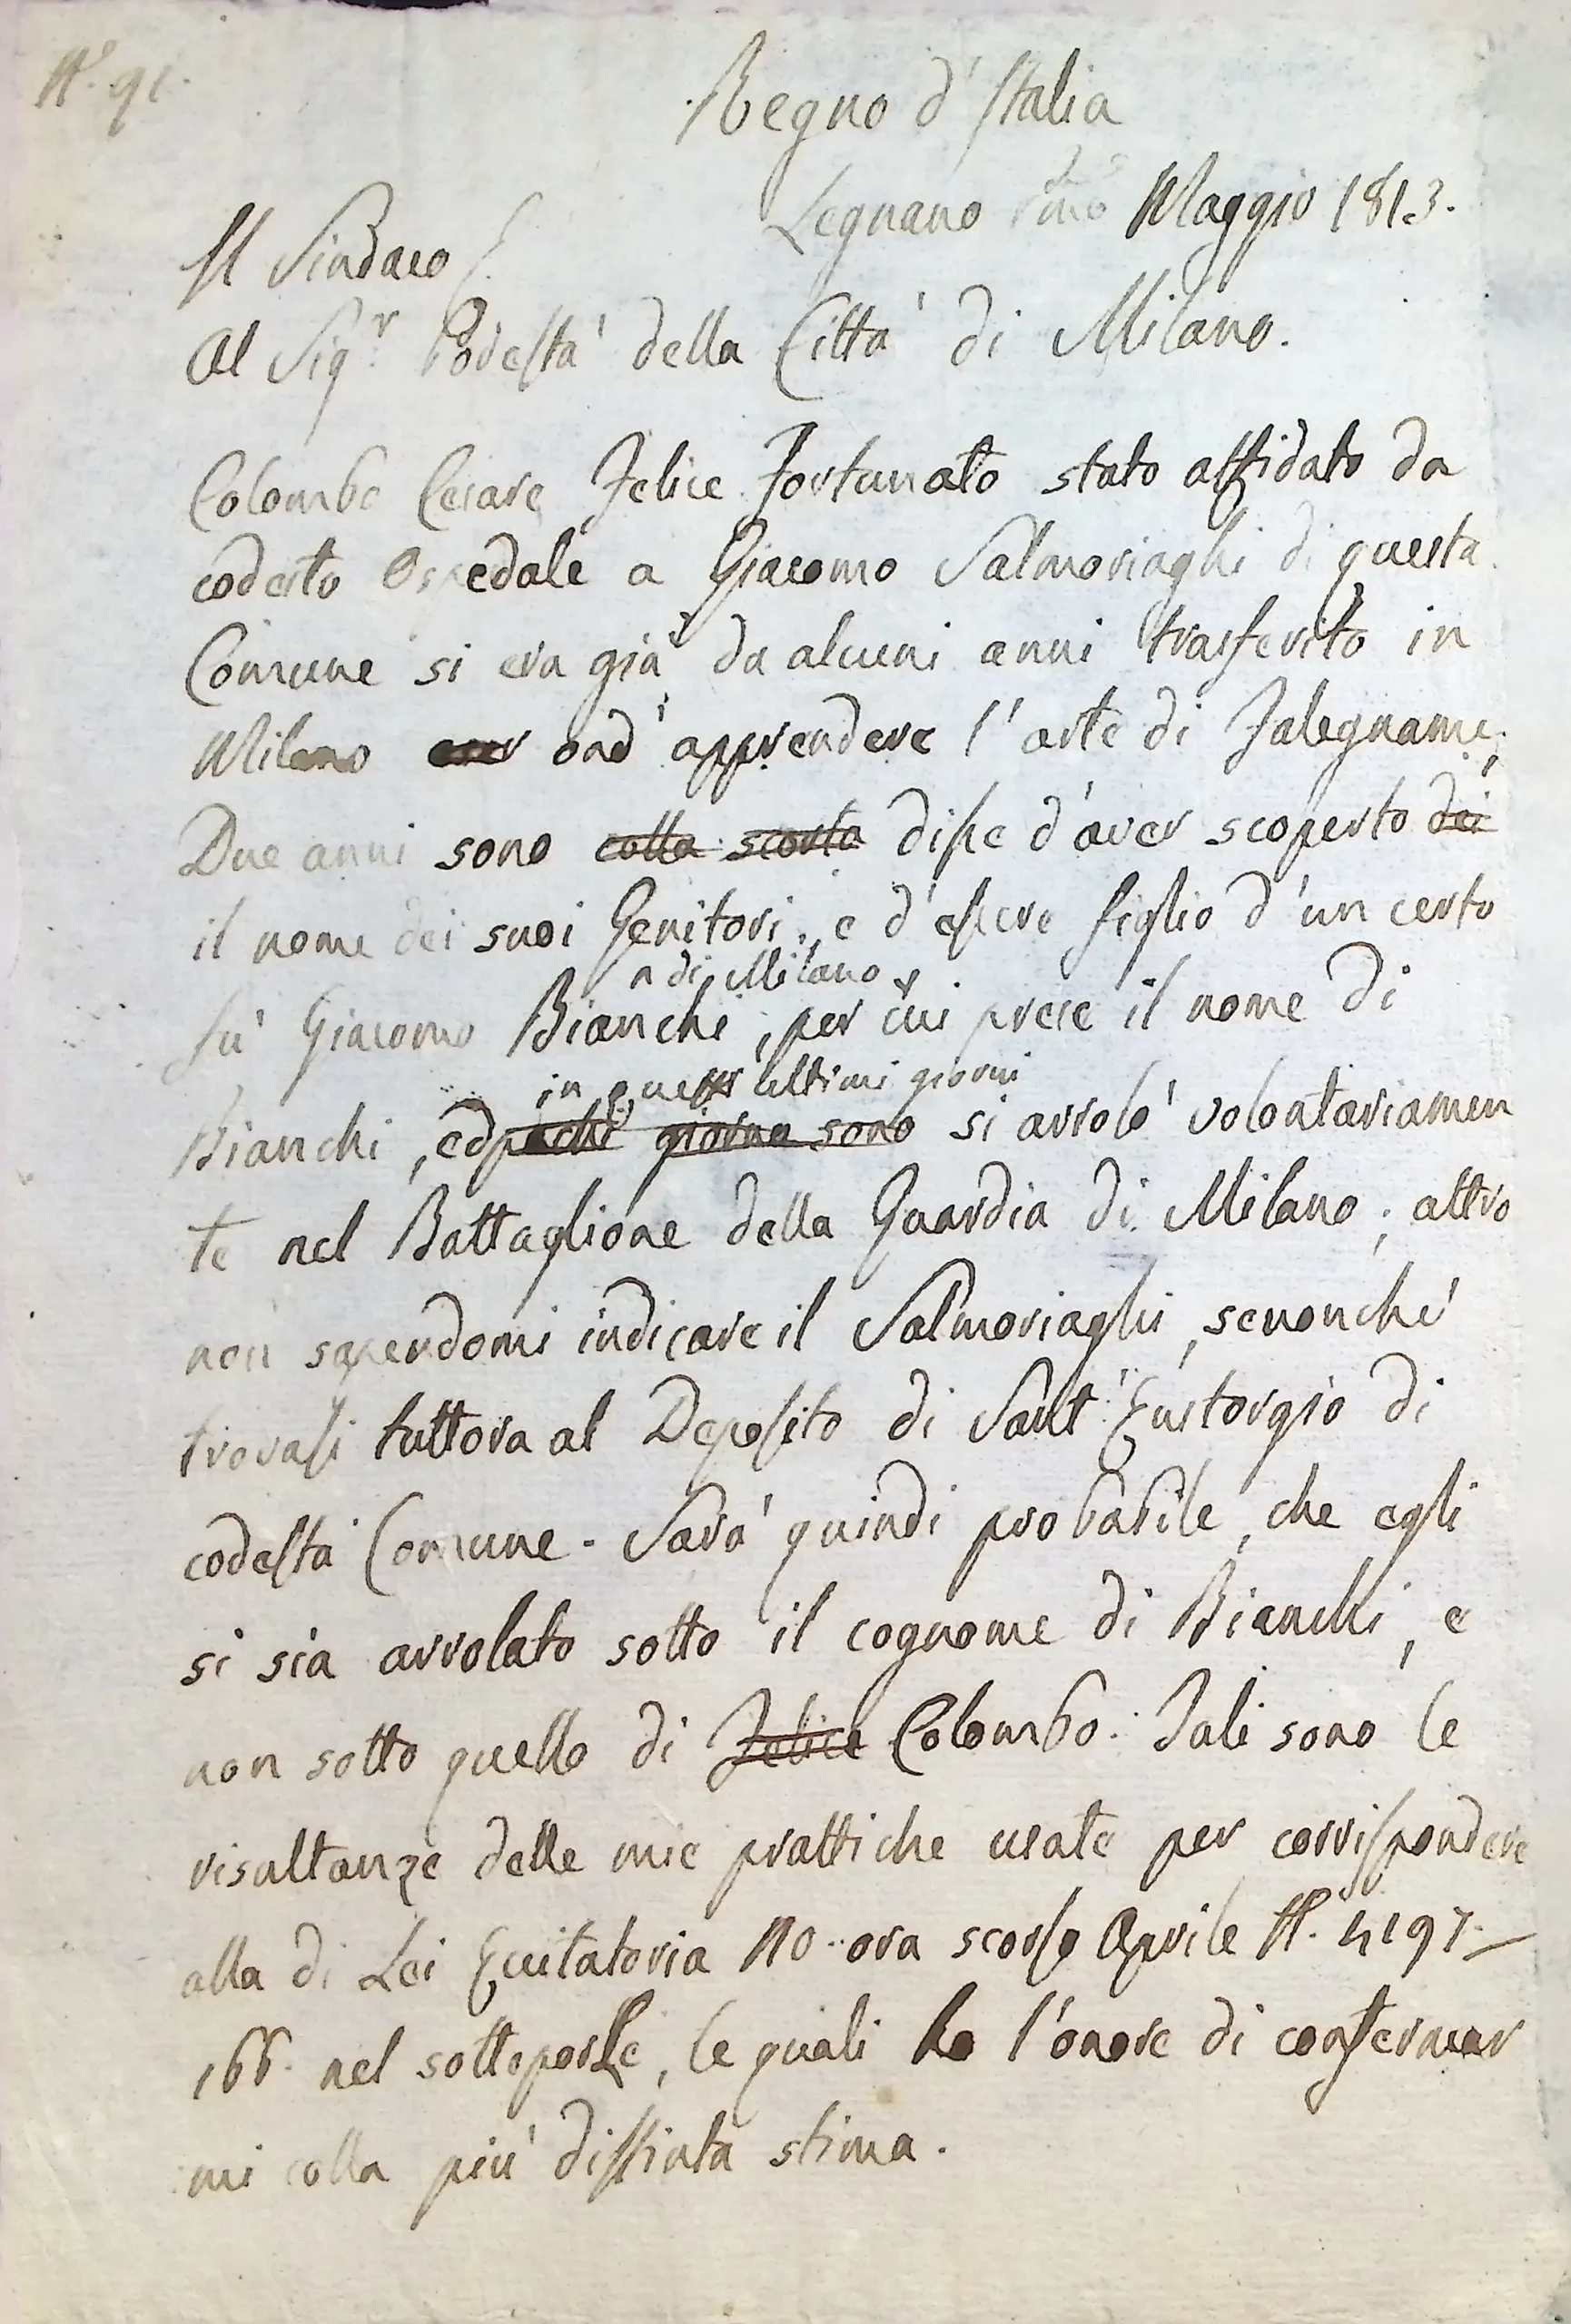 N.° 91.
Regno d'Italia
Legnano Maggio 1813.
Il Sindaco
Al Sigr. Podestà della Città di Milano.
Colombo Cesare Felice Fortunato stato affidato da
codesto Ospedale a Giacomo Salmoriaghi di questa
Comune si era già da alcuni anni trasferito in
Milano ond' apprendere l'arte di Falegname;
Due anni sono colla scorta disse d'aver scoperto dei
il nome dei suoi Genitori, e d'essere figlio d'un certo
di Milano
fù Giacomo Bianchi, per cui prese il nome di
in questi ultimi giorni
Bianchi, ed pochi giorni sono si arrolò volontariamen
te nel Battaglione della Guardia di Milano; altro
non sapendomi indicare il Salmoriaghi, senonchè
trovasi tuttora al Deposito di Sant'Eustorgio di
codesta Comune. Sarà quindi probabile, che egli
si sia arrolato sotto il cognome di Bianchi, e
non sotto quello di Felice Colombo. Tali sono le
risultanze delle mie prattiche usate per corrispondere
alla di Lei Eccitatoria 10 ora scorso Aprile N. 4197
166. nel sottoporLe, le quali ho l'onore di confermar
mi colla più distinta stima.